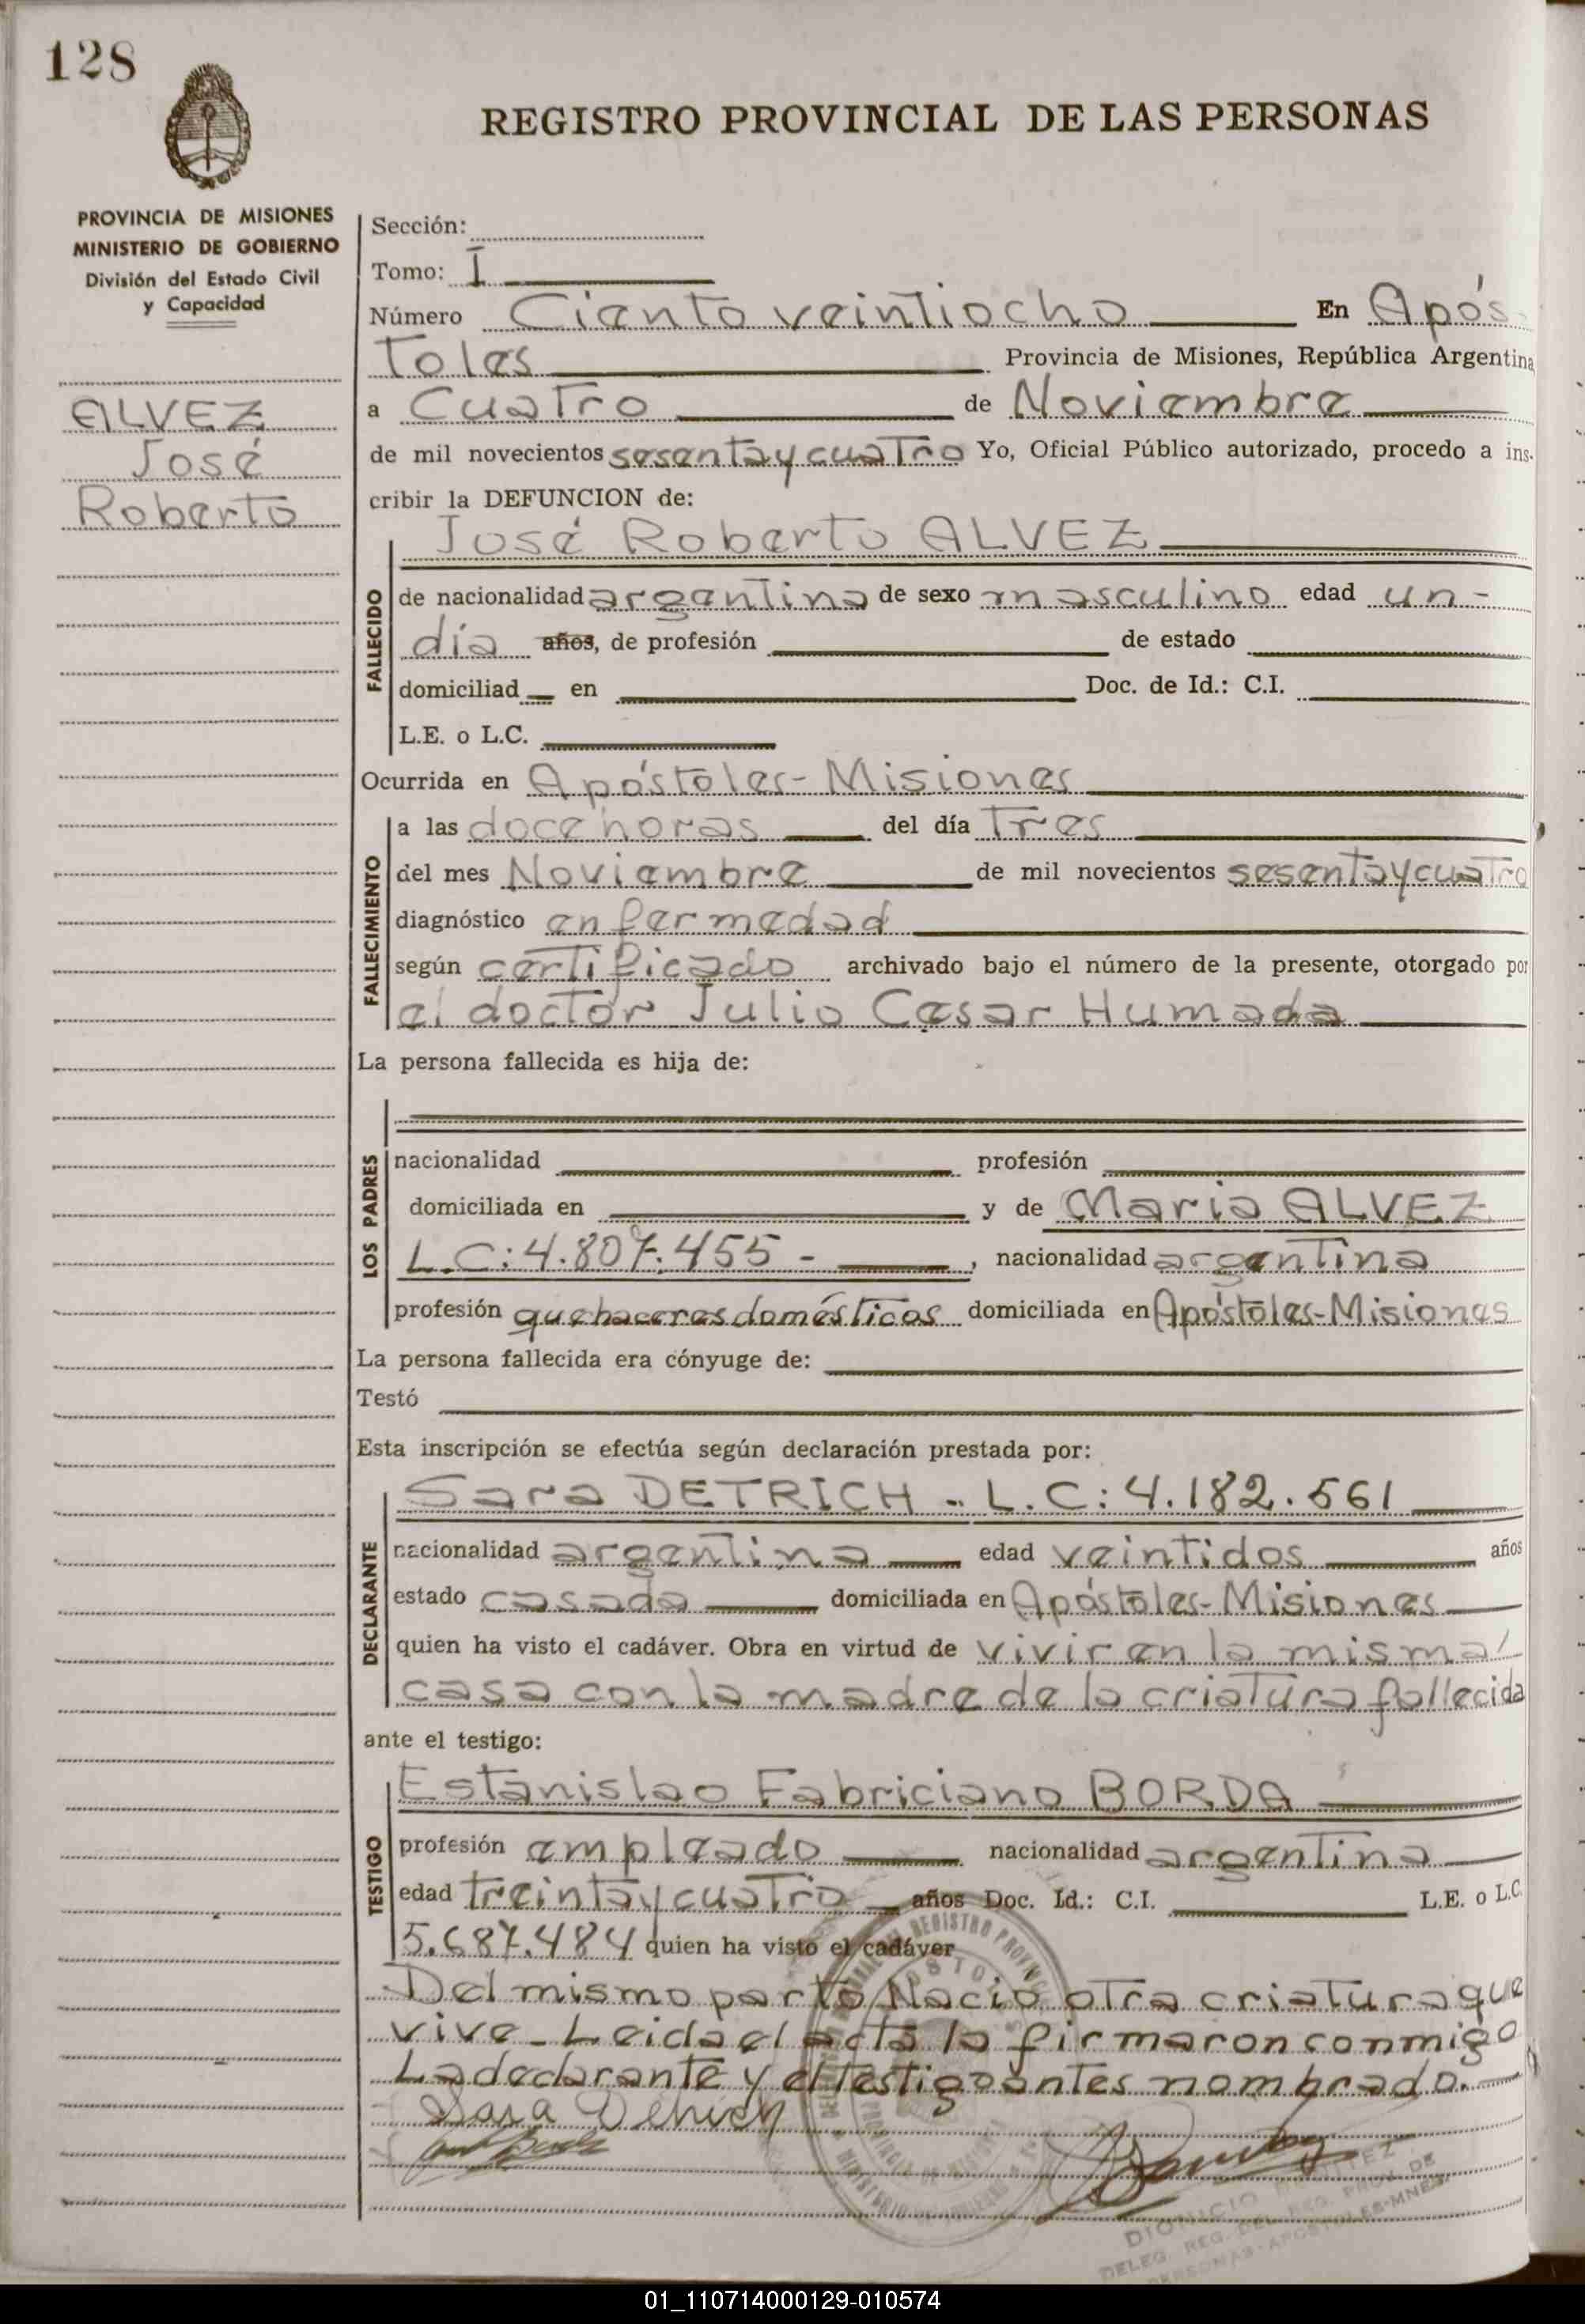 128
REGISTRO PROVINCIAL DE LAS PERSONAS
PROVINCIA DE MISIONES
MINISTERIO DE GOBIERNO
División del Estado Civil
y Capacidad
ALVEZ
José
Roberto
Sección:
Tomo: I
Número Ciento veintiocho En Após
toles Provincia de Misiones, República Argentina
a Cuatro de Noviembre
de mil novecientos sesenta y cuatro Yo, Oficial Público autorizado, procedo a ins-
cribir la DEFUNCION de:
José Roberto ALVEZ
FALLECIDO
de nacionalidad argentina de sexo masculino edad un-
día años, de profesión de estado
domiciliad en Doc. de Id.: C.I.
L.E. o L.C.
Ocurrida en Apóstoles-Misiones
FALLECIMIENTO
a las doce horas del día Tres
del mes Noviembre de mil novecientos sesenta y cuatro
diagnóstico enfermedad
según certificado archivado bajo el número de la presente, otorgado por
el doctor Julio Cesar Humada
La persona fallecida es hija de:
LOS PADRES
nacionalidad profesión
domiciliada en y de Maria ALVEZ
L.C:4.807.455 - , nacionalidad argentina
profesión quehaceres domésticos domiciliada en Apóstoles-Misiones
La persona fallecida era cónyuge de:
Testó
Esta inscripción se efectúa según declaración prestada por:
DECLARANTE
Sara DETRICH - L.C:4.182.561
nacionalidad argentina edad veintidos años
estado casada domiciliada en Apóstoles-Misiones
quien ha visto el cadáver. Obra en virtud de vivir en la misma
casa con la madre de la criatura fallecida
ante el testigo:
TESTIGO
Estanislao Fabriciano BORDA
profesión empleado nacionalidad argentina
edad treinta y cuatro años Doc. Id.: C.I. L.E. o L.C.
5.687.484 quien ha visto el cadáver
Del mismo parto Nacio otra criatura que
vive- Leida el acta la firmaron conmigo
La declarante y el testigo antes nombrado.
Sara Detrich
DIONICIO
DELEG. REG. DEL REG. PROV. DE
PERSONAS-APOSTOLES-MNES.
01_110714000129-010574